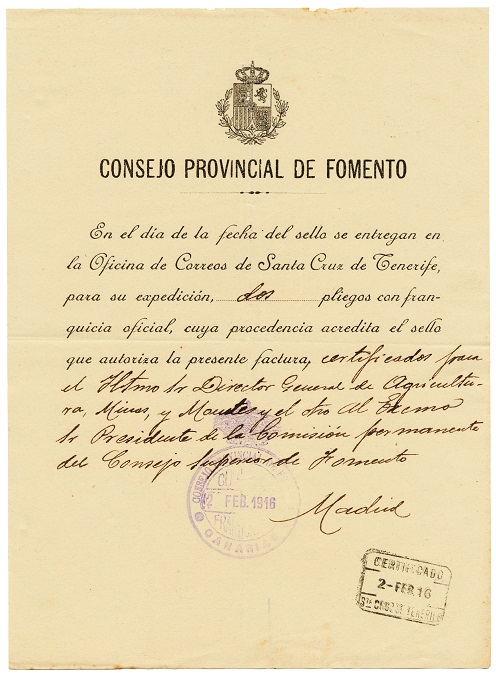 CONSEJO PROVINCIAL DE FOMENTO
En el día de la fecha del sello se entregan en
la Oficina de Correos de Santa Cruz de Tenerife,
para su expedición, dos pliegos con fran-
quicia oficial, cuya procedencia acredita el sello
que autoriza la presente factura, certificados para
el Iltmo Sr Director General de Agricultu-
ra, Minas, y Montes y el otro Al Excmo
Sr Presidente de la Comisión permanente
del Consejo Superior de Fomento
Madrid
CONSEJO PROVINCIAL DE
2 FEB. 1916
CANARIAS
CERTIFICADO
2-FEB.16
STA CRUZ DE TENERIFE